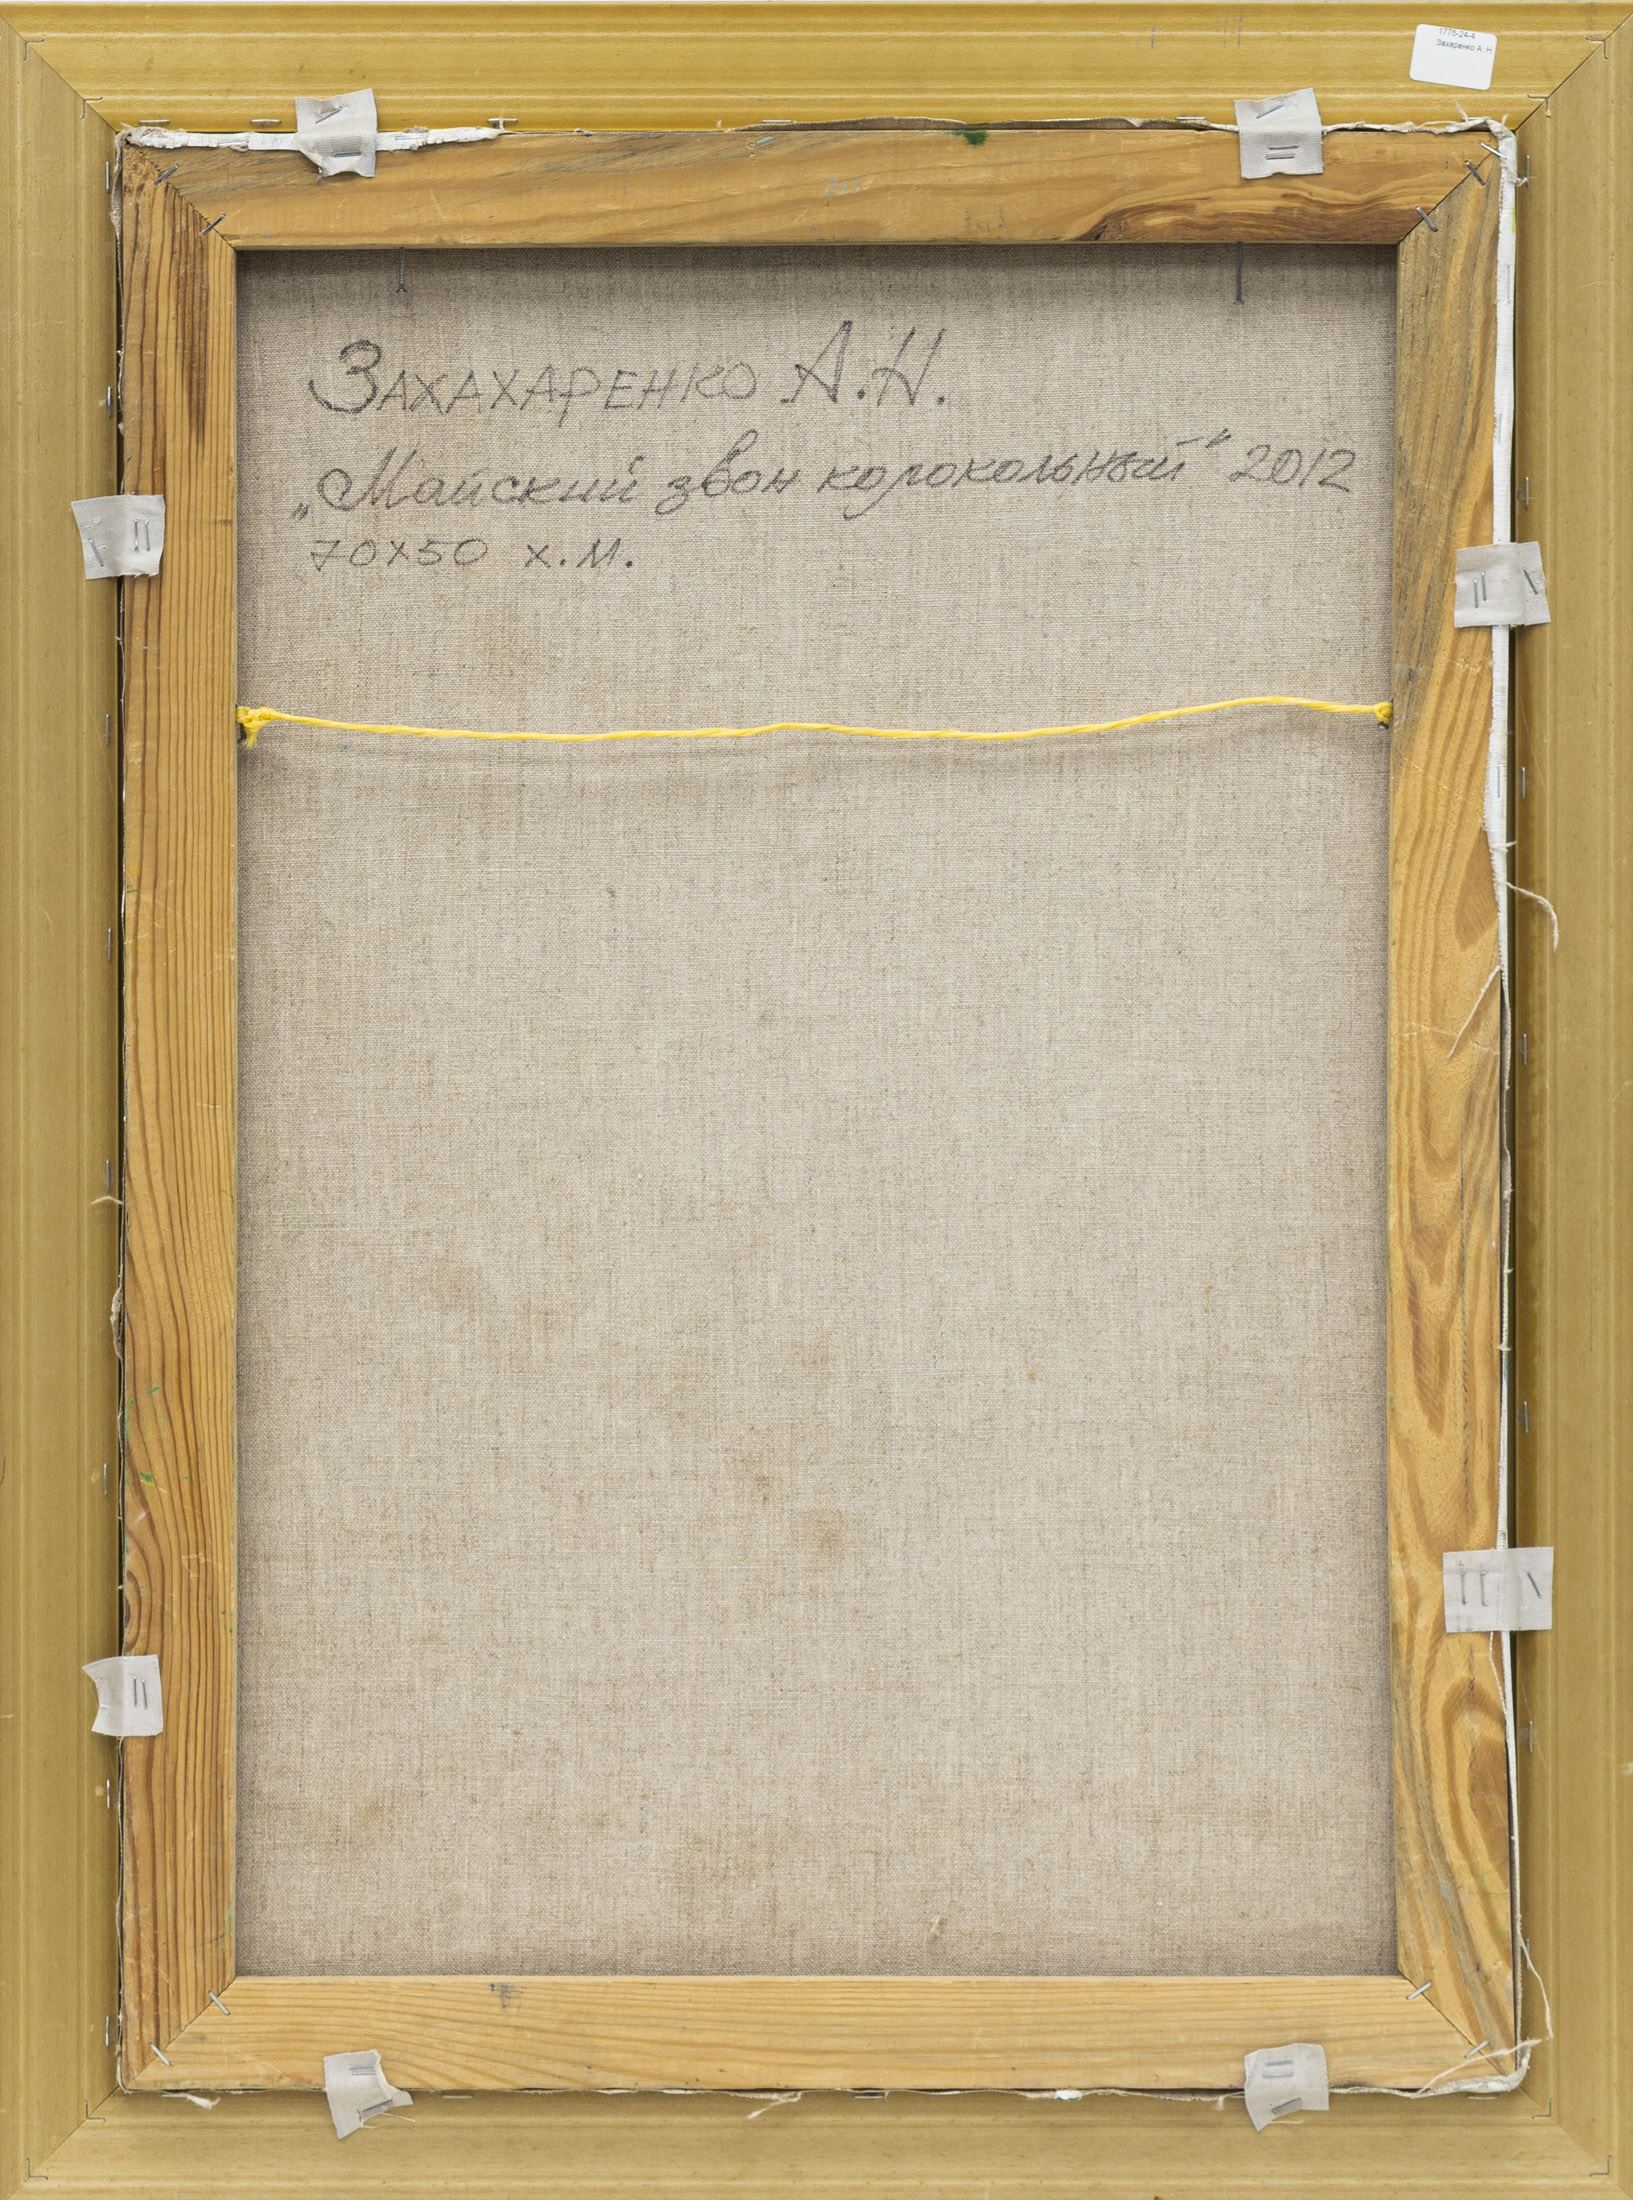 1775-24-4
Захаренко А. Н
Захахаренко А.Н.
„Майский звон колокольный" 2012
70х50 х.м.